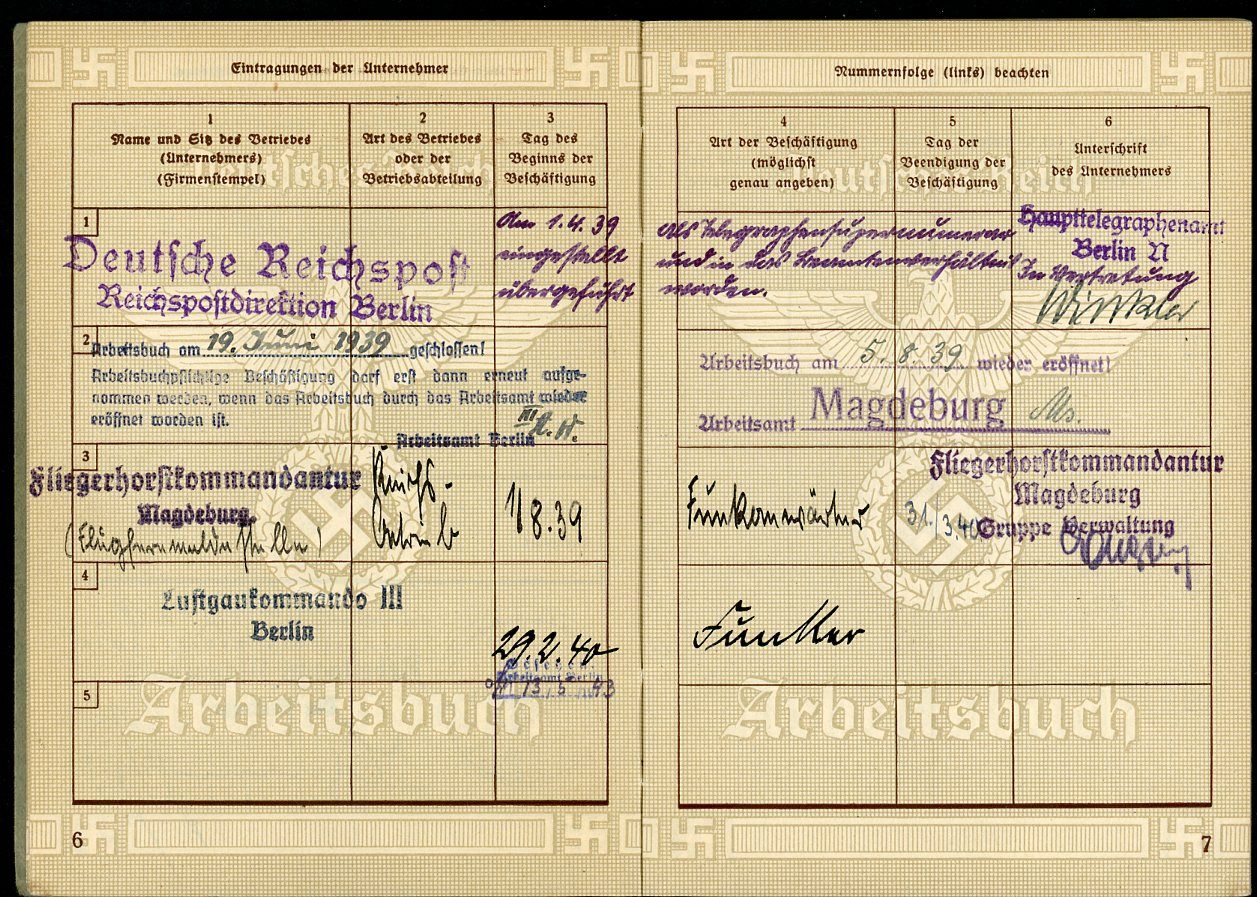 Eintragungen der Unternehmer
1
Name und Sitz des Betriebes
(Unternehmers)
(Firmenstempel)
2
Art des Betriebes
oder der
Betriebsabteilung
3
Tag des
Beginns der
Beschäftigung
1
Deutsche Reichspost
Reichspostdirektion Berlin
Am 1.4.39
eingestellt
übergeführt
2
Arbeitsbuch am 19. Juni 1939 geschlossen!
Arbeitsbuchpflichtige Beschäftigung darf erst dann erneut aufge-
nommen werden, wenn das Arbeitsbuch durch das Arbeitsamt wieder
eröffnet worden ist.
III
Arbeitsamt Berlin
3
Fliegerhorstkommandantur
Magdeburg.
(Flugfernmeldestelle)
Reichs-
betrieb
1/8.39
4
Luftgaukommando III
Berlin
29.2.40
Gesehen
Arbeitsamt Berlin
13. 5. 43
5
Deutsches Reich
Arbeitsbuch
6
Nummernfolge (links) beachten
4
Art der Beschäftigung
(möglichst
genau angeben)
5
Tag der
Beendigung der
Beschäftigung
6
Unterschrift
des Unternehmers
als Telegraphensupernumerar
und in das Beamtenverhältnis
worden.
Haupttelegraphenamt
Berlin N
In Vertretung
Winkler
Arbeitsbuch am 5.8.39 wieder eröffnet!
Arbeitsamt Magdeburg
Funkanwärter
31./3.40
Fliegerhorstkommandantur
Magdeburg
Gruppe Verwaltung
Funker
Deutsches Reich
Arbeitsbuch
7